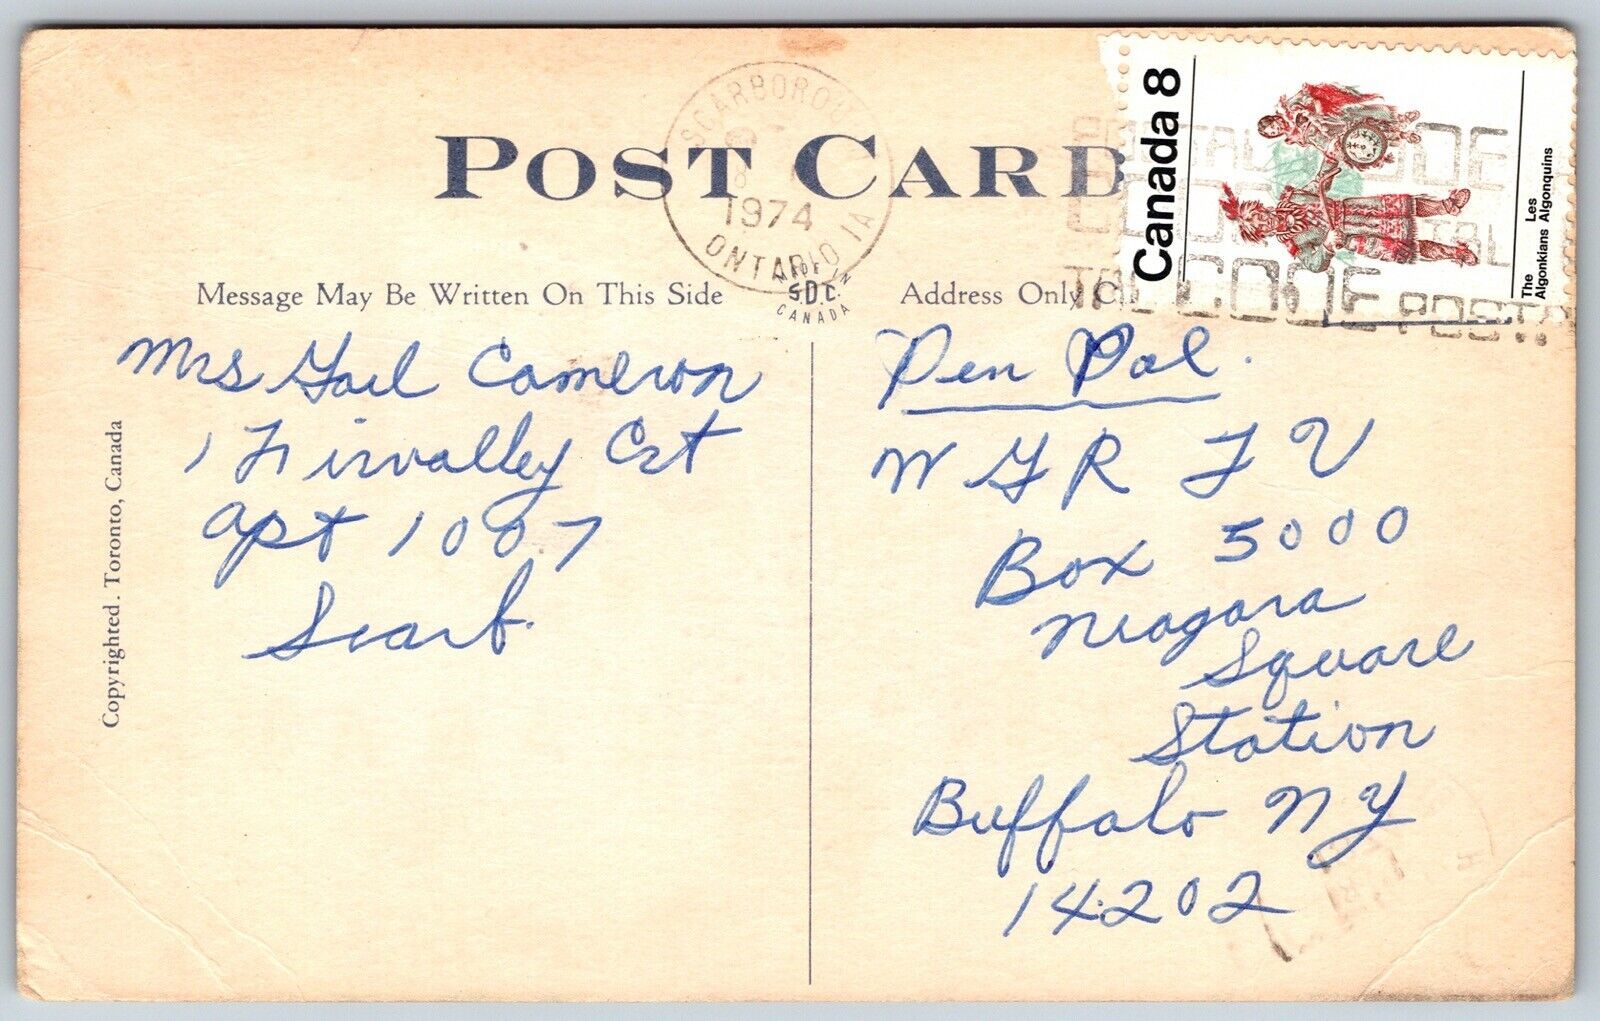 POST CARD
SCARBOROUGH
1974
ONTARIO 1A
Canada 8
The Les
Algonkians Algonquins
POSTAL CODE
CODE POSTAL
Message May Be Written On This Side
MADE IN
S.D.C.
CANADA
Address Only
Mrs Gail Cameron
1 Firvalley Crt
Apt 1007
Scarb.
Copyrighted. Toronto, Canada
Pen Pal.
W G R T V
Box 5000
Niagara
Square
Station
Buffalo NY
14202